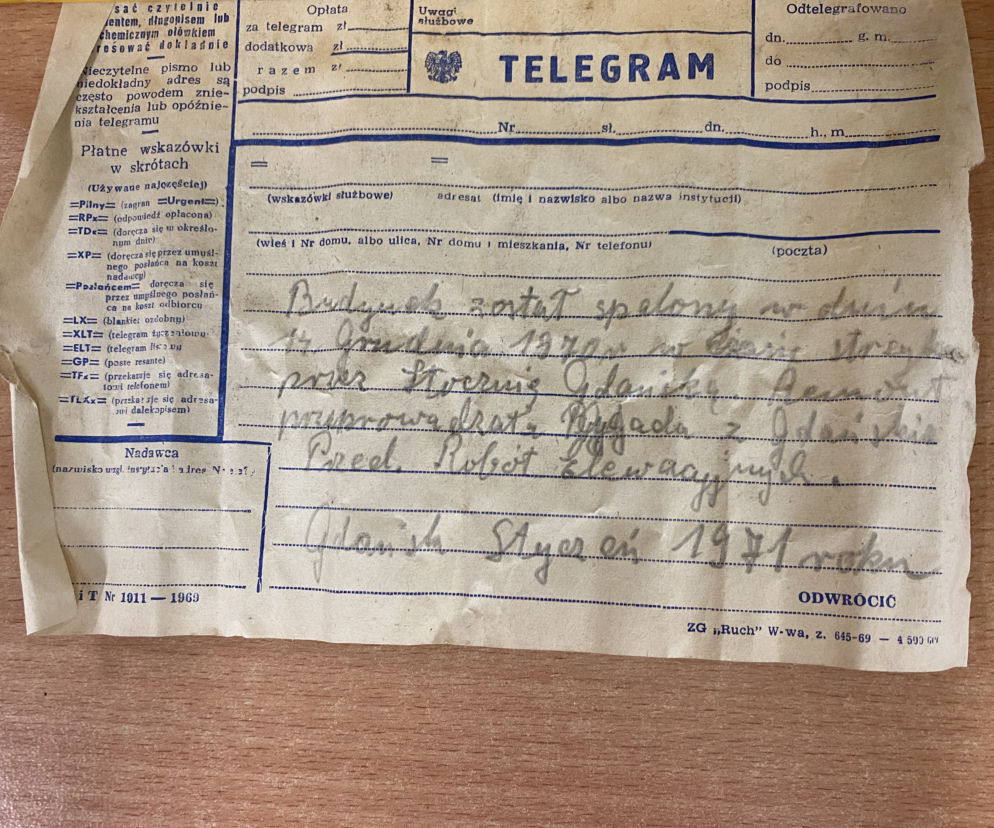 sać czytelnie
entem, długopisem lub
chemicznym ołówkiem
resować dokładnie
Nieczytelne pismo lub
niedokładny adres są
często powodem znie-
kształcenia lub opóźnie-
nia telegramu
Płatne wskazówki
w skrótach
(Używane najczęściej)
=Pilny= (zagran =Urgent=)
=RPx= (odpowiedź opłacona)
=TDx= (doręcza się w określo-
nym dniu)
=XP= (doręcza się przez umyśl-
nego posłańca na koszt
nadawcy)
=Posłańcem= doręcza się
przez umyślnego posłań-
ca na koszt odbiorcu
=LX= (blankiet ozdobny)
=XLT= (telegram życzeniowy)
=ELT= (telegram listowy)
=GP= (poste resante)
=TFx= (przekazuje się adresa-
towi telefonem)
=TLXx= (przekazuje się adresa-
towi dalekopisem)
Opłata
za telegram zł
dodatkowa zł
razem zł
podpis
Uwagi
służbowe
TELEGRAM
Odtelegrafowano
dn. g. m.
do
podpis
Nr sł. dn. h., m.
= =
(wskazówki służbowe) adresat (imię i nazwisko albo nazwa instytucji)
(wieś i Nr domu, albo ulica, Nr domu i mieszkania, Nr telefonu) (poczta)
Budynek został spalony w dniu
14 Grudnia 1970r w czasie strajku
przez Stocznię Gdańską. Remont
przyprowadzała Brygada z Gdańskie
Przed. Robót Elewacyjnych.
Gdańsk Styczeń 1971 roku
Nadawca
(nazwisko wzgl. instytucja i adres
iT Nr 1011 — 1969
ODWRÓCIĆ
ZG „Ruch" W-wa, z. 645-69 — 4 500